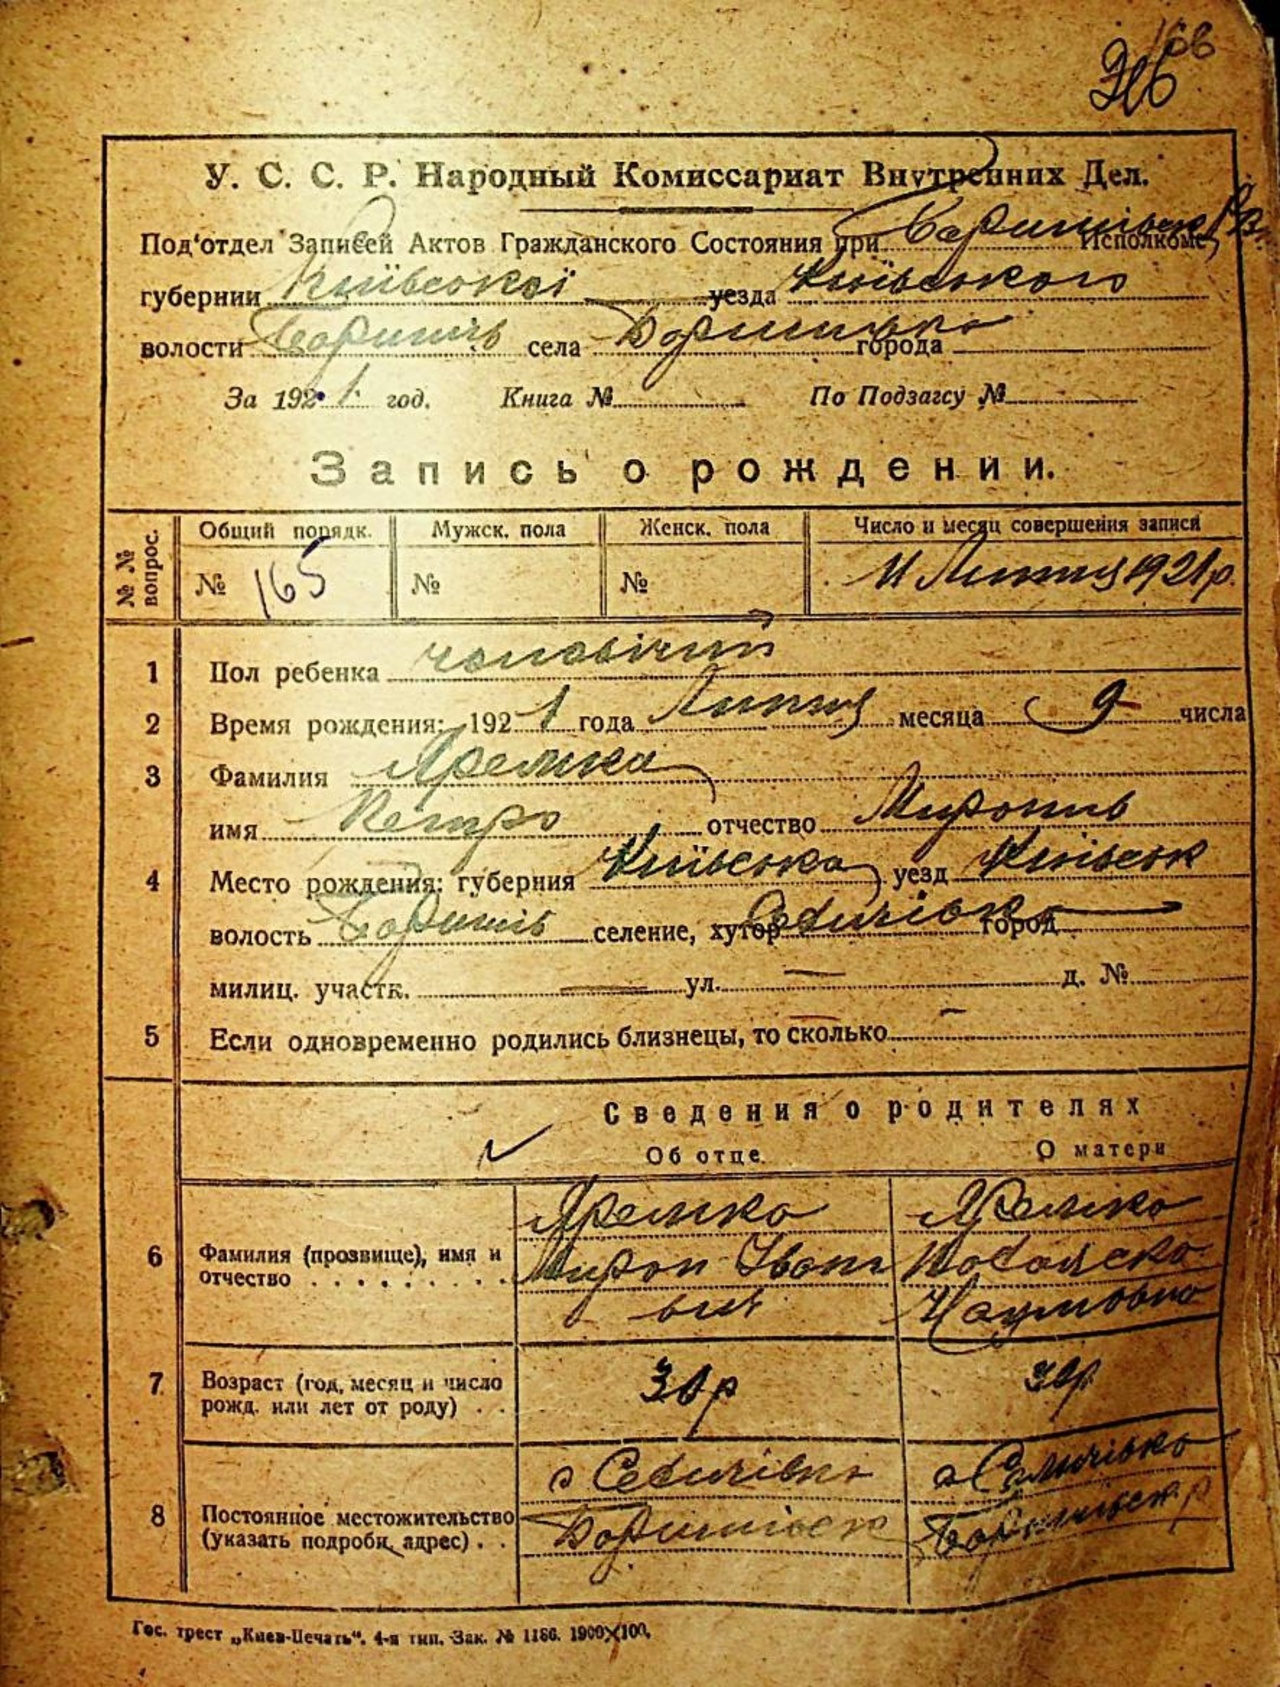 166
У. С. С. Р. Народный Комиссариат Внутренних Дел.
Под'отдел Записей Актов Гражданского Состояния при Исполкоме
губернии Київської уезда Київського
волости села города
За 1921 год. Книга № По Подзагсу №
Запись о рождении.
№ № вопрос. Общий порядк. Мужск. пола Женск. пола Число и месяц совершения записи
№ 165 № № 11 Липня 1921 р.
1 Пол ребенка чоловічий
2 Время рождения: 1921 года Липня месяца 9 числа
3 Фамилия Яремка
имя Петро отчество Миронів
4 Место рождения: губерния Київська уезд Київськ
волость селение, хутор город
милиц. участк. — ул. — д. №
5 Если одновременно родились близнецы, то сколько -
Сведения о родителях
Об отце. О матери
6 Фамилия (прозвище), имя и отчество . . . . . . . . .
Яремко Мирон Іванович
Яремко Наумовна
7 Возраст (год, месяц и число рожд. или лет от роду) . .
30р 30р
8 Постоянное местожительство (указать подробн. адрес) . .
Гос. трест „Киев-Печать“. 4-я тип. Зак. № 1186. 1900×100.